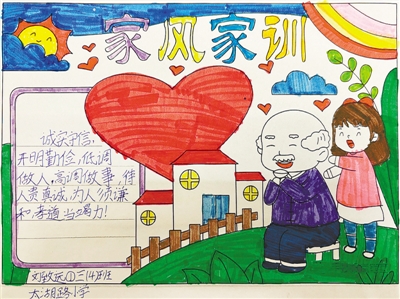 家风家训
诚实守信，
开明勤俭，低调
做人，高调做事，待
人贵真诚，为人须谦
和，孝道当竭力！
三(4)班
太湖路小学